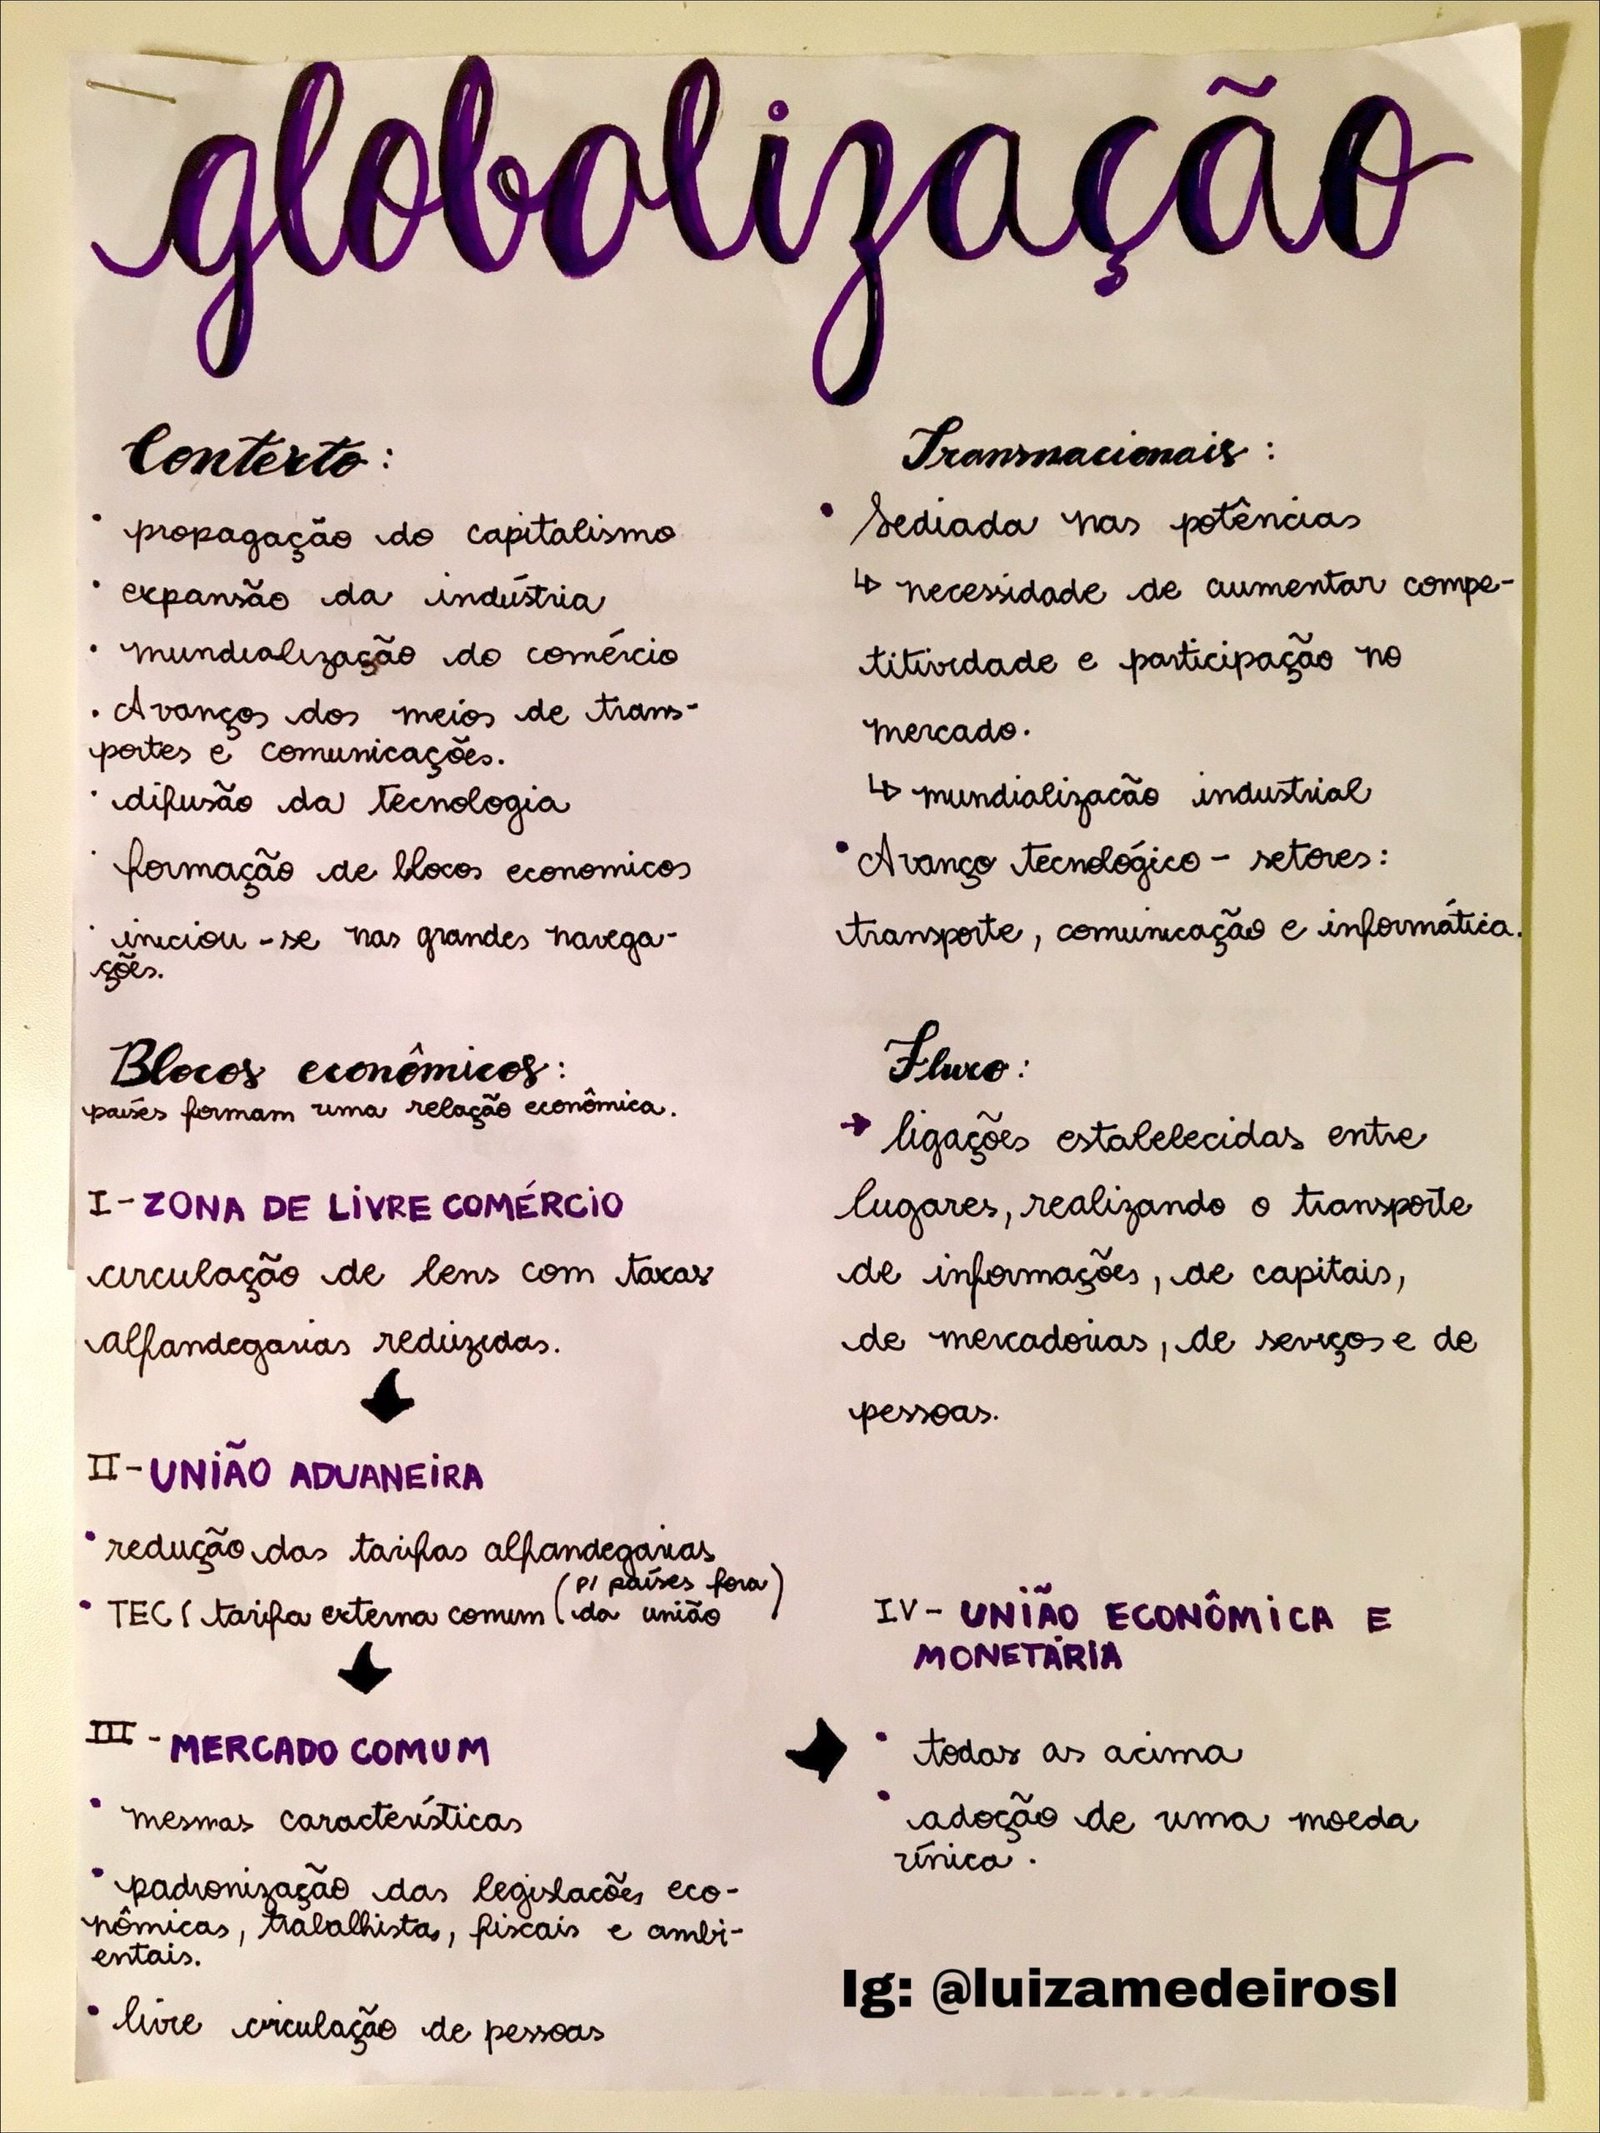 globalização
Contexto:
• propagação do capitalismo
• expansão da indústria
• mundialização do comércio
• Avanços dos meios de trans-
portes e comunicações.
• difusão da tecnologia
• formação de blocos economicos
• iniciou-se nas grandes navega-
ções.
Blocos econômicos:
países formam uma relação econômica.
I - ZONA DE LIVRE COMÉRCIO
circulação de bens com taxas
alfandegarias reduzidas.
II - UNIÃO ADUANEIRA
• redução das tarifas alfandegarias
• TEC ( tarifa externa comum (p/ países fora
da união)
III - MERCADO COMUM
• mesmas características
• padronização das legislacões eco-
nômicas, trabalhista, fiscais e ambi-
entais.
• livre circulação de pessoas
Transnacionais:
• Sediada nas potências
↳ necessidade de aumentar compe-
titividade e participação no
mercado.
↳ mundializacão industrial
• Avanço tecnológico - setores:
transporte, comunicação e informática.
Fluxo:
→ ligações estabelecidas entre
lugares, realizando o transporte
de informações, de capitais,
de mercadorias, de seviços e de
pessoas.
IV - UNIÃO ECONÔMICA E
MONETÁRIA
• todas as acima
• adoção de uma moeda
única.
Ig: @luizamedeirosl